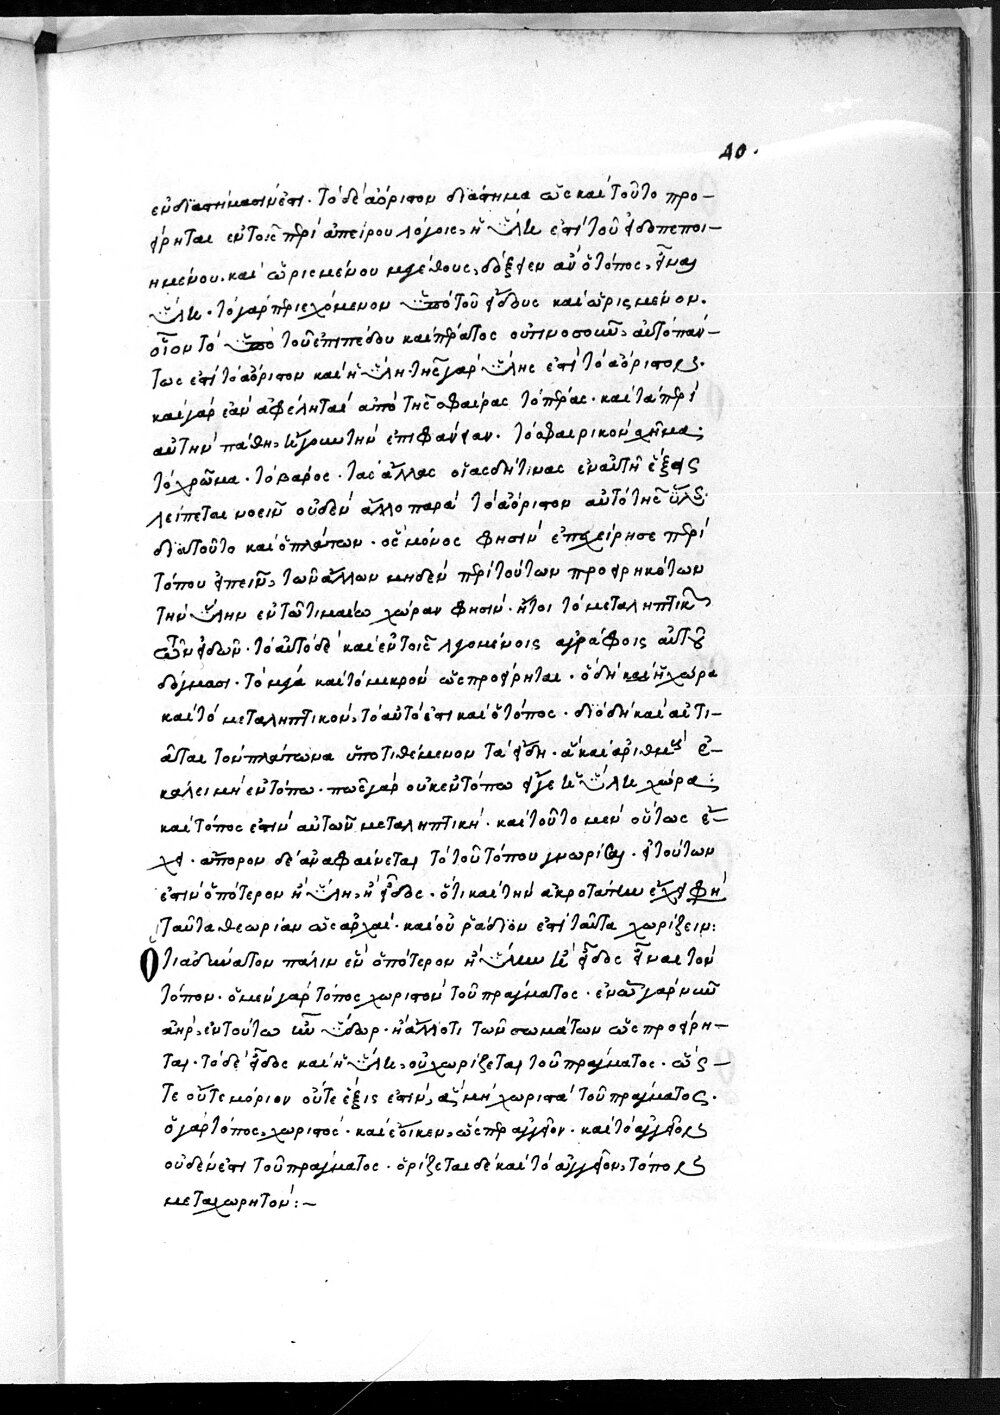 40.
ἐν διαστήμασιν ἐστι. τὸ δὲ ἀόριστον διάστημα ὡς καὶ τοῦτο προ-
είρηται ἐν τοῖς περὶ ἀπείρου λόγοις, ἡ ὕλη ἐστὶ τοῦ εἰδοπεποι-
ημένου. καὶ ὡρισμένου μεγέθους, δόξειεν ἂν ὁ τόπος, εἶναι
ὕλη. τὸ γὰρ περιεχόμενον ὑπὸ τοῦ εἴδους καὶ ὡρισμένον.
οἷον τὸ ὑπὸ τοῦ ἐπιπέδου καὶ πέρατος οὑτινοσοῦν, αὐτὸ πάν-
τως ἐστὶ τὸ ἀόριστον καὶ ἡ ὕλη. τῆς γὰρ ὕλης ἐστὶ τὸ ἀόριστον.
καὶ γὰρ ἐὰν ἀφέληται ἀπὸ τῆς σφαίρας τὸ πέρας. καὶ τὰ περὶ
αὐτὴν πάθη, ἤγουν τὴν ἐπιφάνειαν. τὸ σφαιρικὸν σχῆμα.
τὸ χρῶμα. τὸ βάρος. τὰς ἄλλας οἵας δή τινας ἐν αὐτῇ ἕξεις
λείπεται νοεῖν οὐδὲν ἄλλο παρὰ τὸ ἀόριστον αὐτὸ τῆς ὕλης.
διὰ τοῦτο καὶ ὁ πλάτων. ὃς μόνος φησὶν ἐπεχείρησε περὶ
τόπου εἰπεῖν, τῶν ἄλλων μηδὲν περὶ τούτων προειρηκότων
τὴν ὕλην ἐν τῷ τιμαίῳ χώραν φησίν. ἤτοι τὸ μεταληπτικὸν
τῶν εἰδῶν. τὸ αὐτὸ δὲ καὶ ἐν τοῖς λεγομένοις ἀγράφοις αὐτοῦ
δόγμασι. τὸ μέγα καὶ τὸ μικρὸν ὡς προείρηται. ὃ δὴ καὶ ἡ χώρα
καὶ τὸ μεταληπτικόν, τὸ αὐτὸ ἐστι καὶ ὁ τόπος. διὸ δὴ καὶ αἰτι-
ᾶται τὸν πλάτωνα ὑποτιθέμενον τὰ εἴδη. ἃ καὶ ἀριθμοὺς ἐ-
κάλει μὴ ἐν τόπω. πῶς γὰρ οὐκ ἐν τόπω εἴγε ἡ ὕλη χώρα:
καὶ τόπος ἐστὶν αὐτῶν μεταληπτική. καὶ τοῦτο μὲν οὕτως ἔ-
χει. ἄπορον δὲ ἀναφαίνεται τὸ τοῦ τόπου γνωρίσαι. εἰ τούτων
ἐστὶν ὁπότερον ἢ ὕλη, ἢ εἶδος. ὅτι καὶ τὴν ἀκροτάτην ἔχει φησὶ
ταῦτα θεωρίαν ὡς ἀρχαί. καὶ οὐ ῥάδιον ἐστὶ ταῦτα χωρίζειν:
Ὅτι ἀδύνατον πάλιν ἓν ὁπότερον ἢ ὕλην ἢ εἶδος εἶναι τὸν
τόπον. ὁ μὲν γὰρ τόπος χωριστὸν τοῦ πράγματος. ἐν ᾧ γὰρ νῦν
ἀήρ, ἐν τούτω ἦν ὕδωρ. ἢ ἄλλο τι τῶν σωμάτων ὡς προείρη-
ται. τὸ δὲ εἶδος καὶ ἡ ὕλη, οὐ χωρίζεται τοῦ πράγματος. ὥσ-
τε οὔτε μόριον οὔτε ἕξις ἐστίν, ἃ μὴ χωριστὰ τοῦ πράγματος.
ὁ γὰρ τόπος, χωριστός. καὶ ἔοικεν, ὥσπερ ἀγγεῖον. καὶ τὸ ἀγγεῖον
οὐδέν ἐστι τοῦ πράγματος. ὁρίζεται δὲ καὶ τὸ ἀγγεῖον, τόπον
μεταχωρητόν:-